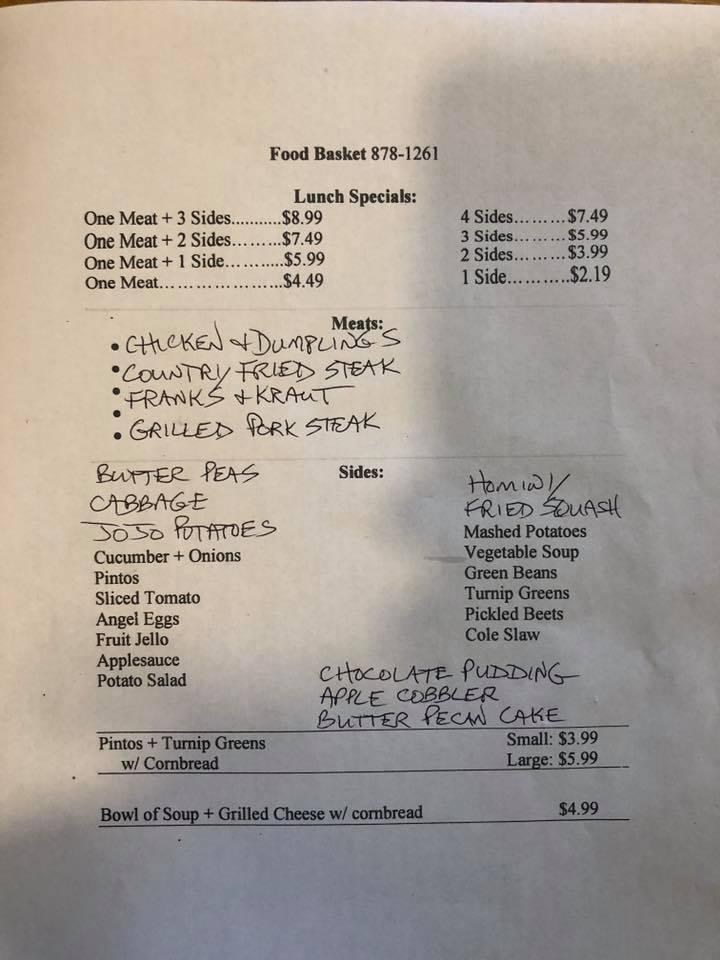 Food Basket 878-1261
Lunch Specials:
One Meat + 3 Sides..........$8.99
One Meat + 2 Sides.........$7.49
One Meat + 1 Side...........$5.99
One Meat.....................$4.49
4 Sides.........$7.49
3 Sides.........$5.99
2 Sides.........$3.99
1 Side..........$2.19
Meats:
• CHICKEN + DUMPLINGS
• COUNTRY FRIED STEAK
• FRANKS + KRAUT
•
• GRILLED PORK STEAK
Sides:
BUTTER PEAS
CABBAGE
JOJO POTATOES
Cucumber + Onions
Pintos
Sliced Tomato
Angel Eggs
Fruit Jello
Applesauce
Potato Salad
HOMINY
FRIED SQUASH
Mashed Potatoes
Vegetable Soup
Green Beans
Turnip Greens
Pickled Beets
Cole Slaw
CHOCOLATE PUDDING
APPLE COBBLER
BUTTER PECAN CAKE
Pintos + Turnip Greens Small: $3.99
w/ Cornbread Large: $5.99
Bowl of Soup + Grilled Cheese w/ cornbread $4.99